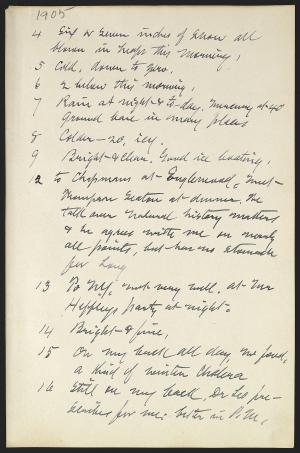 1905
4 Six or seven inches of snow all
blown in heaps this morning,
5 Cold, down to zero.
6 2 below this morning,
7 Rain at night & to-day. Mercury at 40
Ground bare in many places
8 Colder - 20, icy.
9 Bright & clear. Good ice boating,
12 to Chapmans at Englewood, meet
Thompson Seaton at dinner. We
talk over natural history matters
& he agrees with me on nearly
all points, but has no stomach
for Long
13 To N.Y. not very well. at
Heffleys party at night.
14 Bright & fine,
15 On my back all day, no food,
a kind of winter Cholera
16 Still on my back, Dr pre-
scribes for me; better in P.M.,